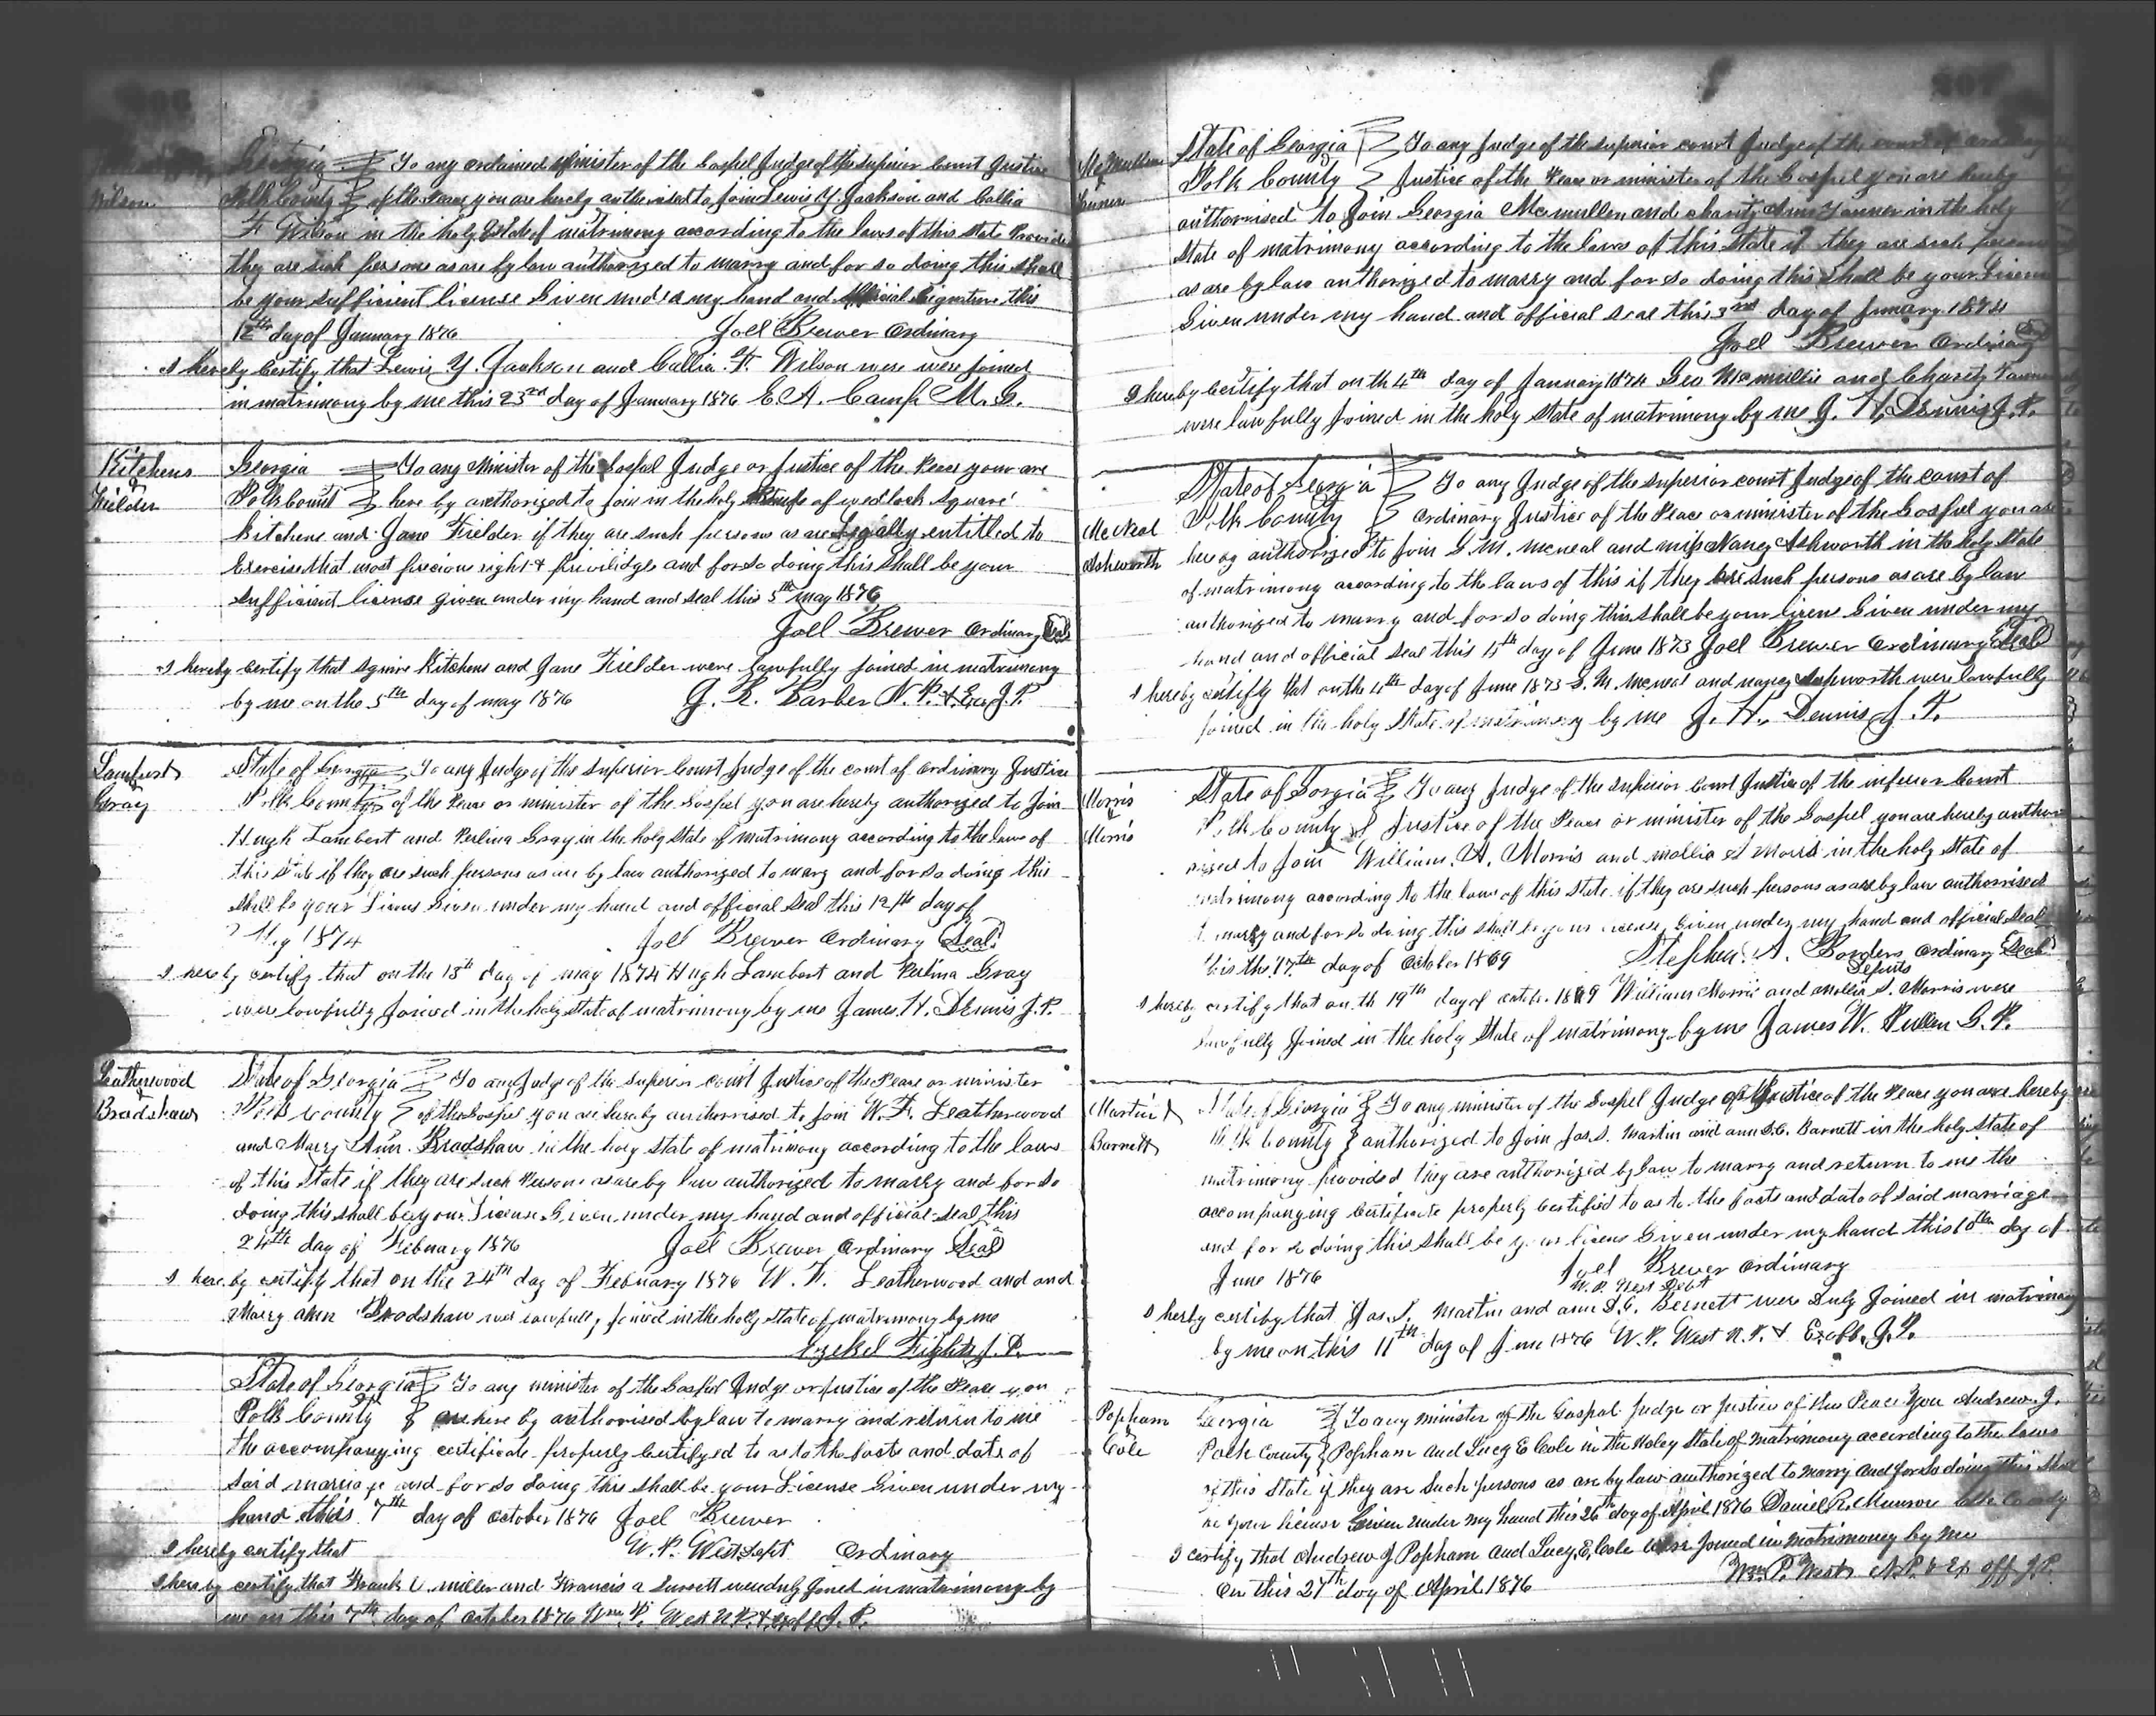 206
Wilson
Georgia To any ordained minister of the Gospel Judge of the Superior Court Justice
Polk County of the Peace you are hereby authorized to join Lewis Y. Jackson and Callia
F Wilson in the holy State of matrimony according to the laws of this State Provided
they are such persons as are by law authorized to marry and for so doing this shall
be your sufficient license Given under my hand and official Signature this
12th day of January 1876 Joel Brewer Ordinary
I hereby Certify that Lewis Y. Jackson and Callia. F. Wilson were were joined
in matrimony by me this 23rd day of January 1876 E. A. Camp M. G.
Kitchens
&
Fielder
Georgia To any Minister of the Gospel Judge or Justice of the Peace your are
Polk Count here by authorized to join in the holy of wedlock Squire
Kitchens and Jane Fielder if they are such persons as are Legally entitled to
Exercise that most precious right & priviledge and for so doing this shall be your
sufficient license given under my hand and seal this 5th may 1876
Joel Brewer Ordinary Seal
I hereby certify that Squire Kitchens and Jane Fielder were lawfully joined in matrimony
by me on the 5th day of may 1876 G. R. Barber N. P. & Exo J. P.
Lambert
&
Gray
State of Georgia To any Judge of the Superior Court Judge of the court of ordinary Justice
Polk County of the Peace or minister of the Gospel you are hereby authorized to Join
Hugh Lambert and Perlina Gray in the holy state of matrimony according to the laws of
this State if they are such persons as are by law authorized to mary and for so doing this
shall be your License Given under my hand and official Seal this 12th day of
May 1874 Joel Brewer Ordinary Seal
I hereby certify that on the 13th day of may 1874 Hugh Lambert and Perlina Gray
were lawfully Joined in the holy state of matrimony by me James. H. Dennis J. P.
Leatherwood
&
Bradshaw
State of Georgia To any Judge of the Superior court Justice of the Peace or minister
Polk County of the Gospel you are hereby authorised to join W. F. Leatherwood
and Marry Ann Bradshaw in the holy state of matrimony according to the laws
of this State if they are such Persons as are by law authorized to marry and for so
doing this shall be your License Given under my hand and official seal this
24th day of February 1876 Joel Brewer Ordinary Seal
I here by certify that on the 24th day of February 1876 W. F. Leatherwood and and
Marry Ann Bradshaw were lawfully joined in the holy State of matrimony by me
Ezekel Fights J. P.
State of Georgia To any minister of the Gospel Judge or Justice of the Peace you
Polk County are here by authorised by law to marry and return to me
the accompanying certificate properly Certifyed to as to the facts and date of
said marriage and for so doing this shall be your License Given under my
hand this 7th day of October 1876 Joel Brewer
I hereby certify that W. P. West Dept Ordinary
I hereby certify that Frank miller and Francis a were duly joined in matrimony by
me on this 7th day of October 1876 Wm P. West N. P. & Exoff J. P.
207
McMullen
&
Tanner
State of Georgia To any Judge of the Superior court Judge of the court of ordinary
Polk County Justice of the Peace or minister of the Gospel you are hereby
authorrised to Join Georgia Mcmullen and Charity Ann Tanner in the holy
State of matrimony according to the laws of this State if they are such persons
as are by law authorized to marry and for so doing this Shall be your License
Given under my hand and official seal this 3rd day of January 1874
Joel Brewer Ordinary Seal
I hereby Certify that on th 4th day of January 1874 Geo Mcmullin and Charity Tanner
were lawfully Joined in the holy state of matrimony by me J. H. Dennis J. P.
McNeal
&
Ashworth
State of Georgia To any Judge of the superior court Judge of the court of
Polk County Ordinary Justice of the Peace or minister of the Gospel you are
hereby authorized to Join S. M. mcneal and miss Nancy Ashworth in the holy State
of matrimony according to the laws of this if they are such persons as are by law
authorized to marry and for so doing this shall be your License Given under my
hand and official Seal this 4th day of June 1873 Joel Brewer Ordinary Seal
I hereby certify that on the 4th day of June 1873 S. M. Mcneal and nancy Ashworth were lawfully
Joined in the holy State of matrimony by me J. H. Dennis J. P.
Morris
&
Morris
State of Gorgia To any Judge of the Superior Court Justice of the inferior Court
Polk County Justice of the Peace or minister of the Gospel you are hereby autho
rized to Join William. A. Morris and mollia S Morris in the holy State of
matrimony according to the laws of this State if they are such persons as are by law authorised
to marry and for so doing this shall be your license Given under my hand and official Seal
this the 17th day of October 1869 Stephen. A. Borders Ordinary Seal
Deputs
I hereby certify that on th 19th day of 1869 William Morris and Mollia S. Morris were
lawfully Joined in the holy State of matrimony by me James W. Pullen G. P.
Martin &
Barnett
State of Georgia To any minister of the Gospel Judge or Justice of the Peace you are hereby
Polk County authorized to Join Jas. S. Martin and ann S. C. Barnett in the holy State of
matrimony provided they are authorized by law to marry and return to me the
accompanying Certificate properly Certifid to as to the facts and date of said marriage
and for so doing this shall be your license Given under my hand this 10th day of
June 1876 Joel Brewer Ordinary
W. P. West Dept
I herby certify that Jas. S. Martin and ann S. C. Bernett were Duly Joined in matrimony
by me on this 11th day of June 1876 W. P. West N. P. & Exoff. J. P.
Popham
&
Cole
Georgia To any minister of the Gospel Judge or Justice of the Peace You Andrew. J.
Polk County Popham and Lucy E Cole in the Holey State of Matrimony according to the Laws
of this State if they are Such persons as are by law authorized to Marry and for So doing this Shall
be your license Given under My hand this 26th day of April 1876 Daniel R. Munroe County
I certify that Andrew J Popham and Lucy. E. Cole were Joined in Matrimony by Me
On this 27th day of April 1876 Wm P. West N. P. & Ex off J. P.